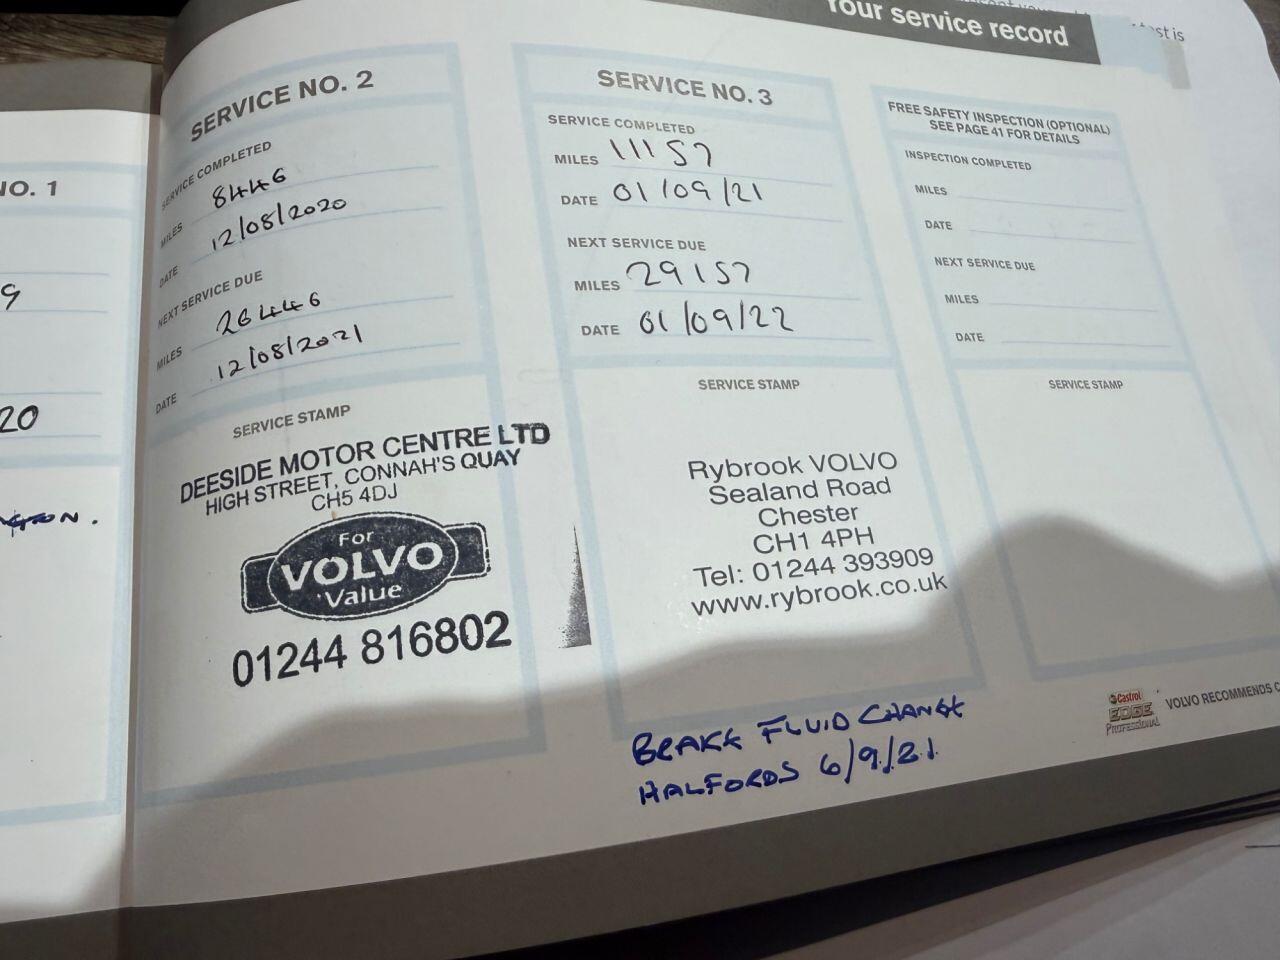 Your service record
st is
NO. 1
9
20
SERVICE NO. 2
SERVICE COMPLETED
MILES 8446
DATE 12/08/2020
NEXT SERVICE DUE
MILES 26446
DATE 12/08/2021
SERVICE STAMP
DEESIDE MOTOR CENTRE LTD
HIGH STREET, CONNAH'S QUAY
CH5 4DJ
For
VOLVO
Value
01244 816802
SERVICE NO. 3
SERVICE COMPLETED
MILES 11157
DATE 01/09/21
NEXT SERVICE DUE
MILES 29157
DATE 01/09/22
SERVICE STAMP
Rybrook VOLVO
Sealand Road
Chester
CH1 4PH
Tel: 01244 393909
www.rybrook.co.uk
BRAKE FLUID CHANGE
HALFORDS 6/9/21.
FREE SAFETY INSPECTION (OPTIONAL)
SEE PAGE 41 FOR DETAILS
INSPECTION COMPLETED
MILES
DATE
NEXT SERVICE DUE
MILES
DATE
SERVICE STAMP
Castrol
EDGE
PROFESSIONAL
VOLVO RECOMMENDS C